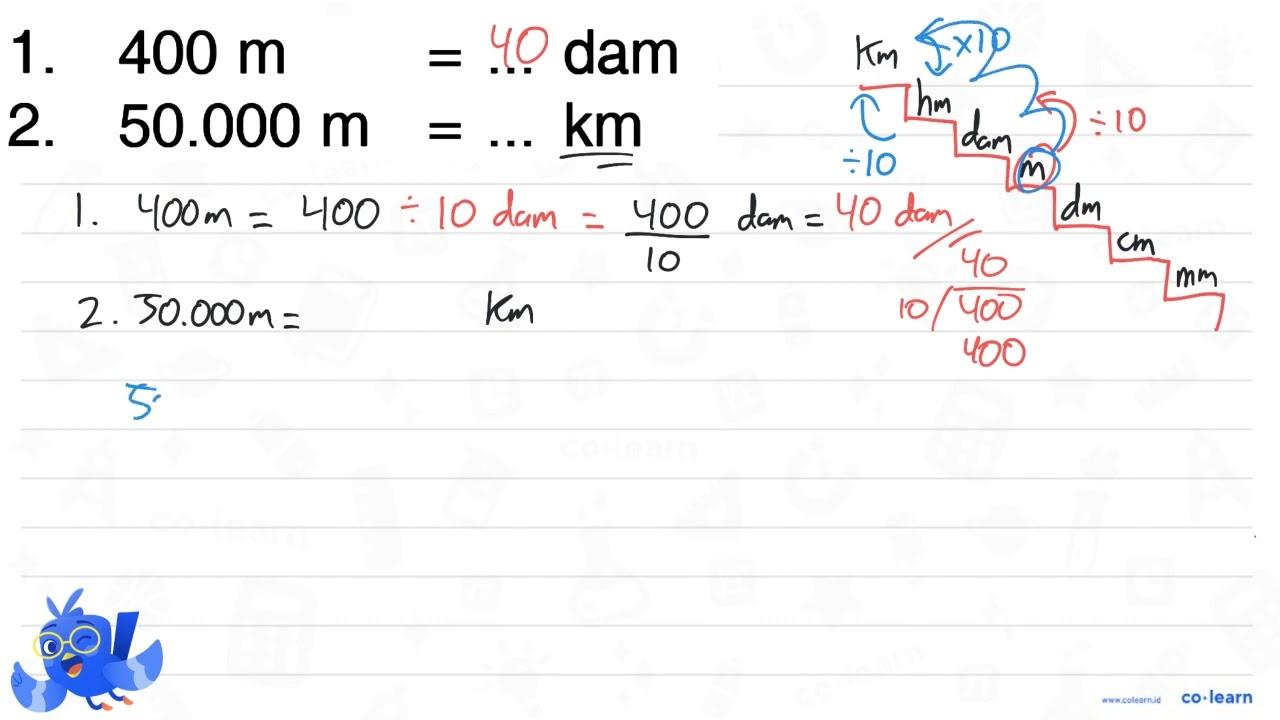 1. 400 m = ... 40 dam
2. 50.000 m = ... km
Km
x10
hm
÷10
dam
÷10
m
dm
cm
mm
1. 400m = 400 ÷ 10 dam = 400/10 dam = 40 dam
40
10/400
400
2. 50.000m = Km
5
co·learn
co·learn
www.colearn.id co·learn